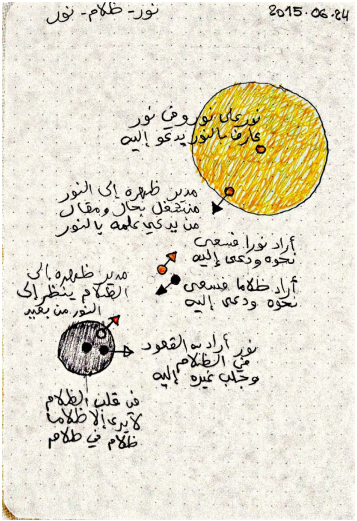 2015.06.24
نور - ظلام - نور
نور على نور وفي نور
عارف بالنور يدعو إليه
مدبر ظهره إلى النور
منشغل بحال ومقال
من يدعي علمه بالنور
أراد نورا فسعى
نحوه ودعى إليه
مدبر ظهره إلى
الظلام ينظر إلى
النور من بعيد
أراد ظلاما فسعى
نحوه ودعى إليه
نور أراد به القعود
في الظلام
وجلب غيره إليه
في قلب الظلام
لا يرى إلا ظلاما
ظلام في ظلام